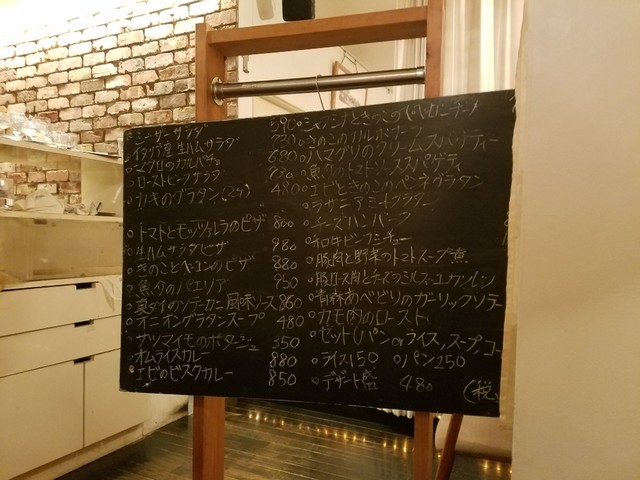 シーザーサラダ 590
イタリア産生ハムサラダ 730
マグロのカルパッチョ 680
ローストビーフサラダ 730
カキのグラタン(2ケ) 480
トマトとモッツァレラのピザ 800
生ハムサラダピザ 980
きのことベーコンのピザ 880
魚介のパエリア 950
真ダイのソテーカニ風味ソース 860
オニオングラタンスープ 480
サツマイモのポタージュ 350
オムライスカレー 880
エビのビスクカレー 850
きのこのカルボナーラ
ハマグリのクリームスパゲティー
魚介のトマトソーススパゲティ
エビときのこのペンネグラタン
ラザニアミートグラタン
チーズハンバーグ
和牛ビーフシチュー
豚肉と野菜のトマトスープ煮
豚ロース肉とチーズのミルフィーユカツレツ
青森あべどりのガーリックソテー
カモ肉のロースト
セット(パンorライス,スープ,コー
ライス150 パン250
デザート盛 480
(税